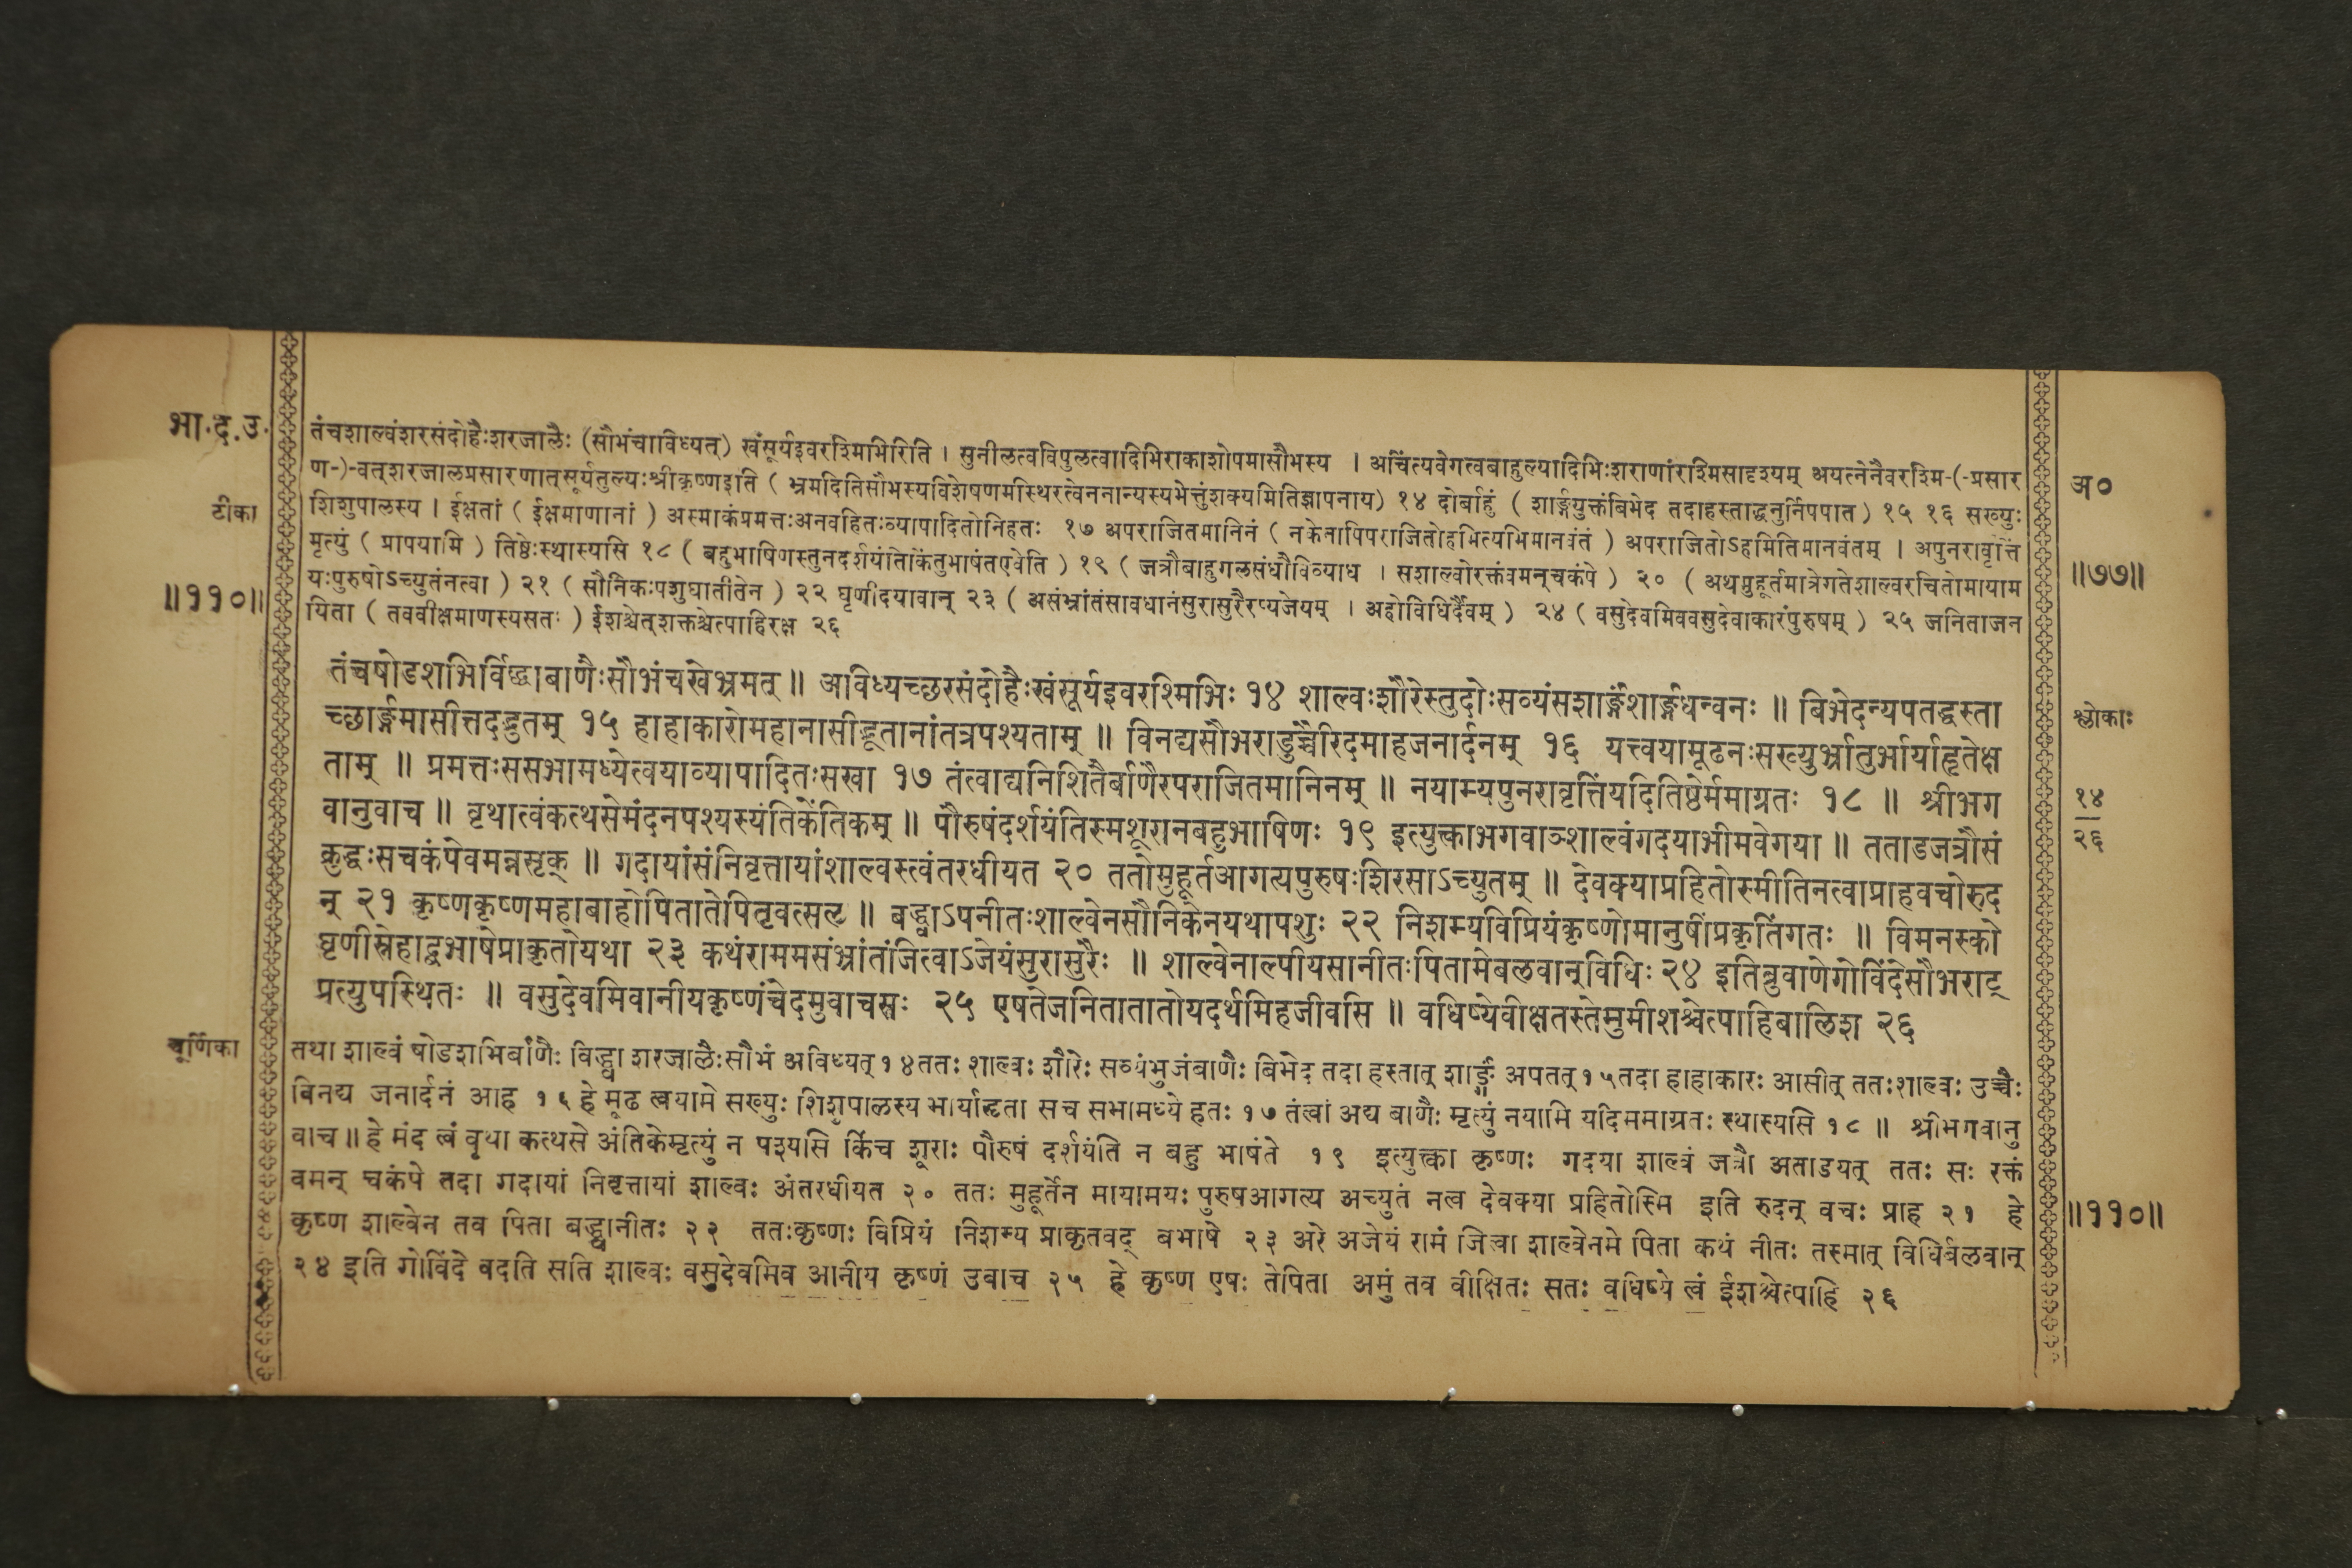 भा.द.उ.
तंचशाल्वंशरसंदोहैःशरजालैः (सौभंचाविध्यत्) खंसूर्यइवरश्मिभिरिति । सुनीलत्वविपुलत्वादिभिराकाशोपमासौभस्य । अचिंत्यवेगत्वबाहुल्यादिभिःशराणांरश्मिसादृश्यम् अयत्नेनैवरश्मि-(-प्रसार
ण-)-वत्शरजालप्रसारणात्सूर्यतुल्यःश्रीकृष्णइति ( भ्रमदितिसौभस्यविशेषणमस्थिरत्वेननान्यस्यभेत्तुंशक्यमितिज्ञापनाय) १४ दोर्बाहुं ( शार्ङ्गयुक्तंबिभेद तदाहस्ताद्धनुर्निपपात ) १५ १६ सख्युः
अ०
टीका
शिशुपालस्य । ईक्षतां ( ईक्षमाणानां ) अस्माकंप्रमत्तःअनवहितःव्यापादितोनिहतः १७ अपराजितमानिनं ( नकेनापिपराजितोहमित्यभिमानवंतं ) अपराजितोऽहमितिमानवंतम् । अपुनरावृत्तिं
मृत्युं ( प्रापयामि ) तिष्ठेःस्थास्यसि १८ ( बहुभाषिणस्तुनदर्शयंतिकिंतुभाषंतएवेति ) १९ ( जत्रौबाहुगलसंधौविव्याध । सशाल्वोरक्तंवमन्चकंपे ) २० ( अथमुहूर्तमात्रेगतेशाल्वरचितोमायाम
॥७७॥
यःपुरुषोऽच्युतंनत्वा ) २१ ( सौनिकःपशुघातीतेन ) २२ घृणीदयावान् २३ ( असंभ्रांतंसावधानंसुरासुरैरप्यजेयम् । अहोविधिर्दैवम् ) २४ ( वसुदेवमिववसुदेवाकारंपुरुषम् ) २५ जनिताजन
॥११०॥
यिता ( तववीक्षमाणस्यसतः ) ईशश्चेत्शक्तश्चेत्पाहिरक्ष २६
तंचषोडशभिर्विद्धाबाणैःसौभंचखेभ्रमत् ॥ अविध्यच्छरसंदोहैःखंसूर्यइवरश्मिभिः १४ शाल्वःशौरेस्तुदोःसव्यंसशार्ङ्गंशार्ङ्गधन्वनः ॥ बिभेदन्यपतद्धस्ता
च्छार्ङ्गमासीत्तदद्भुतम् १५ हाहाकारोमहानासीद्भूतानांतत्रपश्यताम् ॥ विनद्यसौभराडुच्चैरिदमाहजनार्दनम् १६ यत्त्वयामूढनःसख्युर्भ्रातुर्भार्याहृतेक्ष
श्लोकाः
ताम् ॥ प्रमत्तःससभामध्येत्वयाव्यापादितःसखा १७ तंत्वाद्यनिशितैर्बाणैरपराजितमानिनम् ॥ नयाम्यपुनरावृत्तिंयदितिष्ठेर्ममाग्रतः १८ ॥ श्रीभग
१४
वानुवाच ॥ वृथात्वंकत्थसेमंदनपश्यस्यंतिकेंतिकम् ॥ पौरुषंदर्शयंतिस्मशूरानबहुभाषिणः १९ इत्युक्त्वाभगवाञ्शाल्वंगदयाभीमवेगया ॥ तताडजत्रौसं
२६
क्रुद्धःसचकंपेवमन्नसृक् ॥ गदायांसंनिवृत्तायांशाल्वस्त्वंतरधीयत २० ततोमुहूर्तआगत्यपुरुषःशिरसाऽच्युतम् ॥ देवक्याप्रहितोस्मीतिनत्वाप्राहवचोरुद
न् २१ कृष्णकृष्णमहाबाहोपितातेपितृवत्सल ॥ बद्ध्वाऽपनीतःशाल्वेनसौनिकेनयथापशुः २२ निशम्यविप्रियंकृष्णोमानुषींप्रकृतिंगतः ॥ विमनस्को
घृणीस्नेहाद्बभाषेप्राकृतोयथा २३ कथंराममसंभ्रांतंजित्वाऽजेयंसुरासुरैः ॥ शाल्वेनाल्पीयसानीतःपितामेबलवान्विधिः २४ इतिब्रुवाणेगोविंदेसौभराट्
प्रत्युपस्थितः ॥ वसुदेवमिवानीयकृष्णंचेदमुवाचसः २५ एषतेजनितातातोयदर्थमिहजीवसि ॥ वधिष्येवीक्षतस्तेमुमीशश्चेत्पाहिबालिश २६
चूर्णिका
तथा शाल्वं षोडशभिर्बाणैः विद्ध्वा शरजालैःसौभं अविध्यत् १४ ततः शाल्वः शौरेः सव्यंभुजंबाणैः बिभेद तदा हस्तात् शार्ङ्गं अपतत् १५ तदा हाहाकारः आसीत् ततःशाल्वः उच्चैः
विनद्य जनार्दनं आह १६ हे मूढ त्वयामे सख्युः शिशुपालस्य भार्याहृता स च सभामध्ये हतः १७ तंत्वां अद्य बाणैः मृत्युं नयामि यदिममाग्रतः स्थास्यसि १८ ॥ श्रीभगवानु
वाच ॥ हे मंद त्वं वृथा कत्थसे अंतिकेमृत्युं न पश्यसि किंच शूराः पौरुषं दर्शयंति न बहु भाषंते १९ इत्युक्त्वा कृष्णः गदया शाल्वं जत्रौ अताडयत् ततः सः रक्तं
वमन् चकंपे तदा गदायां निवृत्तायां शाल्वः अंतरधीयत २० ततः मुहूर्तेन मायामयः पुरुषआगत्य अच्युतं नत्व देवक्या प्रहितोस्मि इति रुदन् वचः प्राह २१ हे
॥११०॥
कृष्ण शाल्वेन तव पिता बद्ध्वानीतः २२ ततःकृष्णः विप्रियं निशम्य प्राकृतवद् बभाषे २३ अरे अजेयं रामं जित्वा शाल्वेनमे पिता कथं नीतः तस्मात् विधिर्बलवान्
२४ इति गोविंदे वदति सति शाल्वः वसुदेवमिव आनीय कृष्णं उवाच २५ हे कृष्ण एषः तेपिता अमुं तव वीक्षितः सतः वधिष्ये त्वं ईशश्चेत्पाहि २६